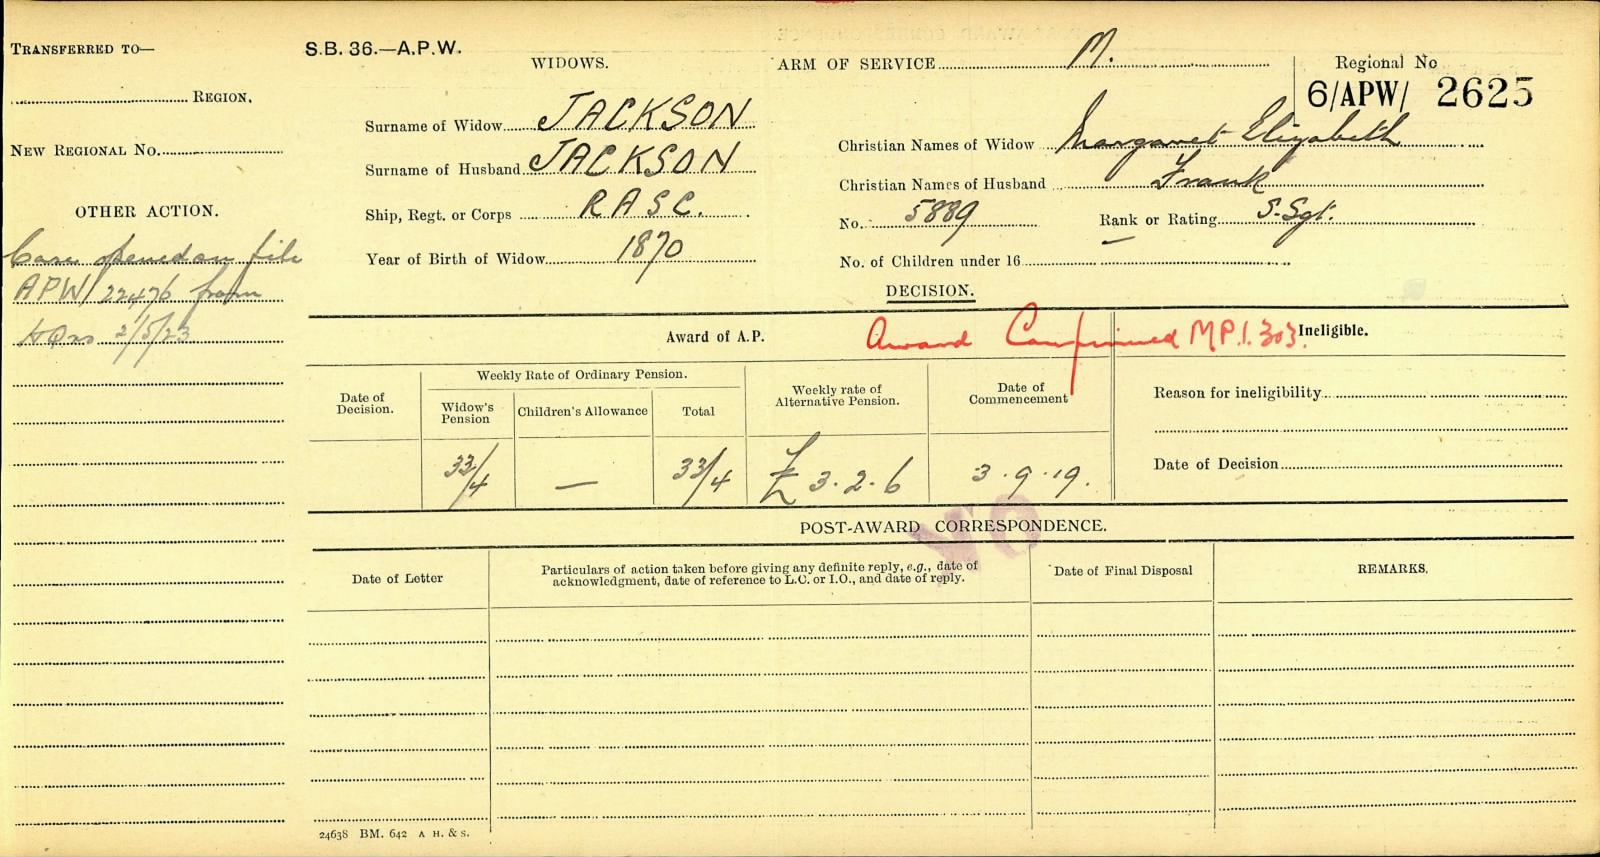 TRANSFERRED TO—
REGION.
NEW REGIONAL NO.
OTHER ACTION.
Case opened on file
APW/22476 from
HQrs 2/5/23
S.B. 36.—A.P.W.
WIDOWS.
ARM OF SERVICE M.
Regional No
6/APW/ 2625
Surname of Widow JACKSON
Christian Names of Widow Margaret Elizabeth
Surname of Husband JACKSON
Christian Names of Husband Frank
Ship, Regt. or Corps RASC.
No. 5889 Rank or Rating S.Sgt.
Year of Birth of Widow 1870
No. of Children under 16 —
DECISION.
Award of A.P.
Award Confirmed M.P.I. 303.
Ineligible.
Date of Decision.
Weekly Rate of Ordinary Pension.
Widow's Pension
Children's Allowance
Total
Weekly rate of Alternative Pension.
Date of Commencement
33/4 — 33/4 £3.2.6 3.9.19.
Reason for ineligibility
Date of Decision
POST-AWARD CORRESPONDENCE.
Date of Letter
Particulars of action taken before giving any definite reply, e.g., date of
acknowledgment, date of reference to L.C. or I.O., and date of reply.
Date of Final Disposal
REMARKS.
24638 BM. 642 A H. & S.